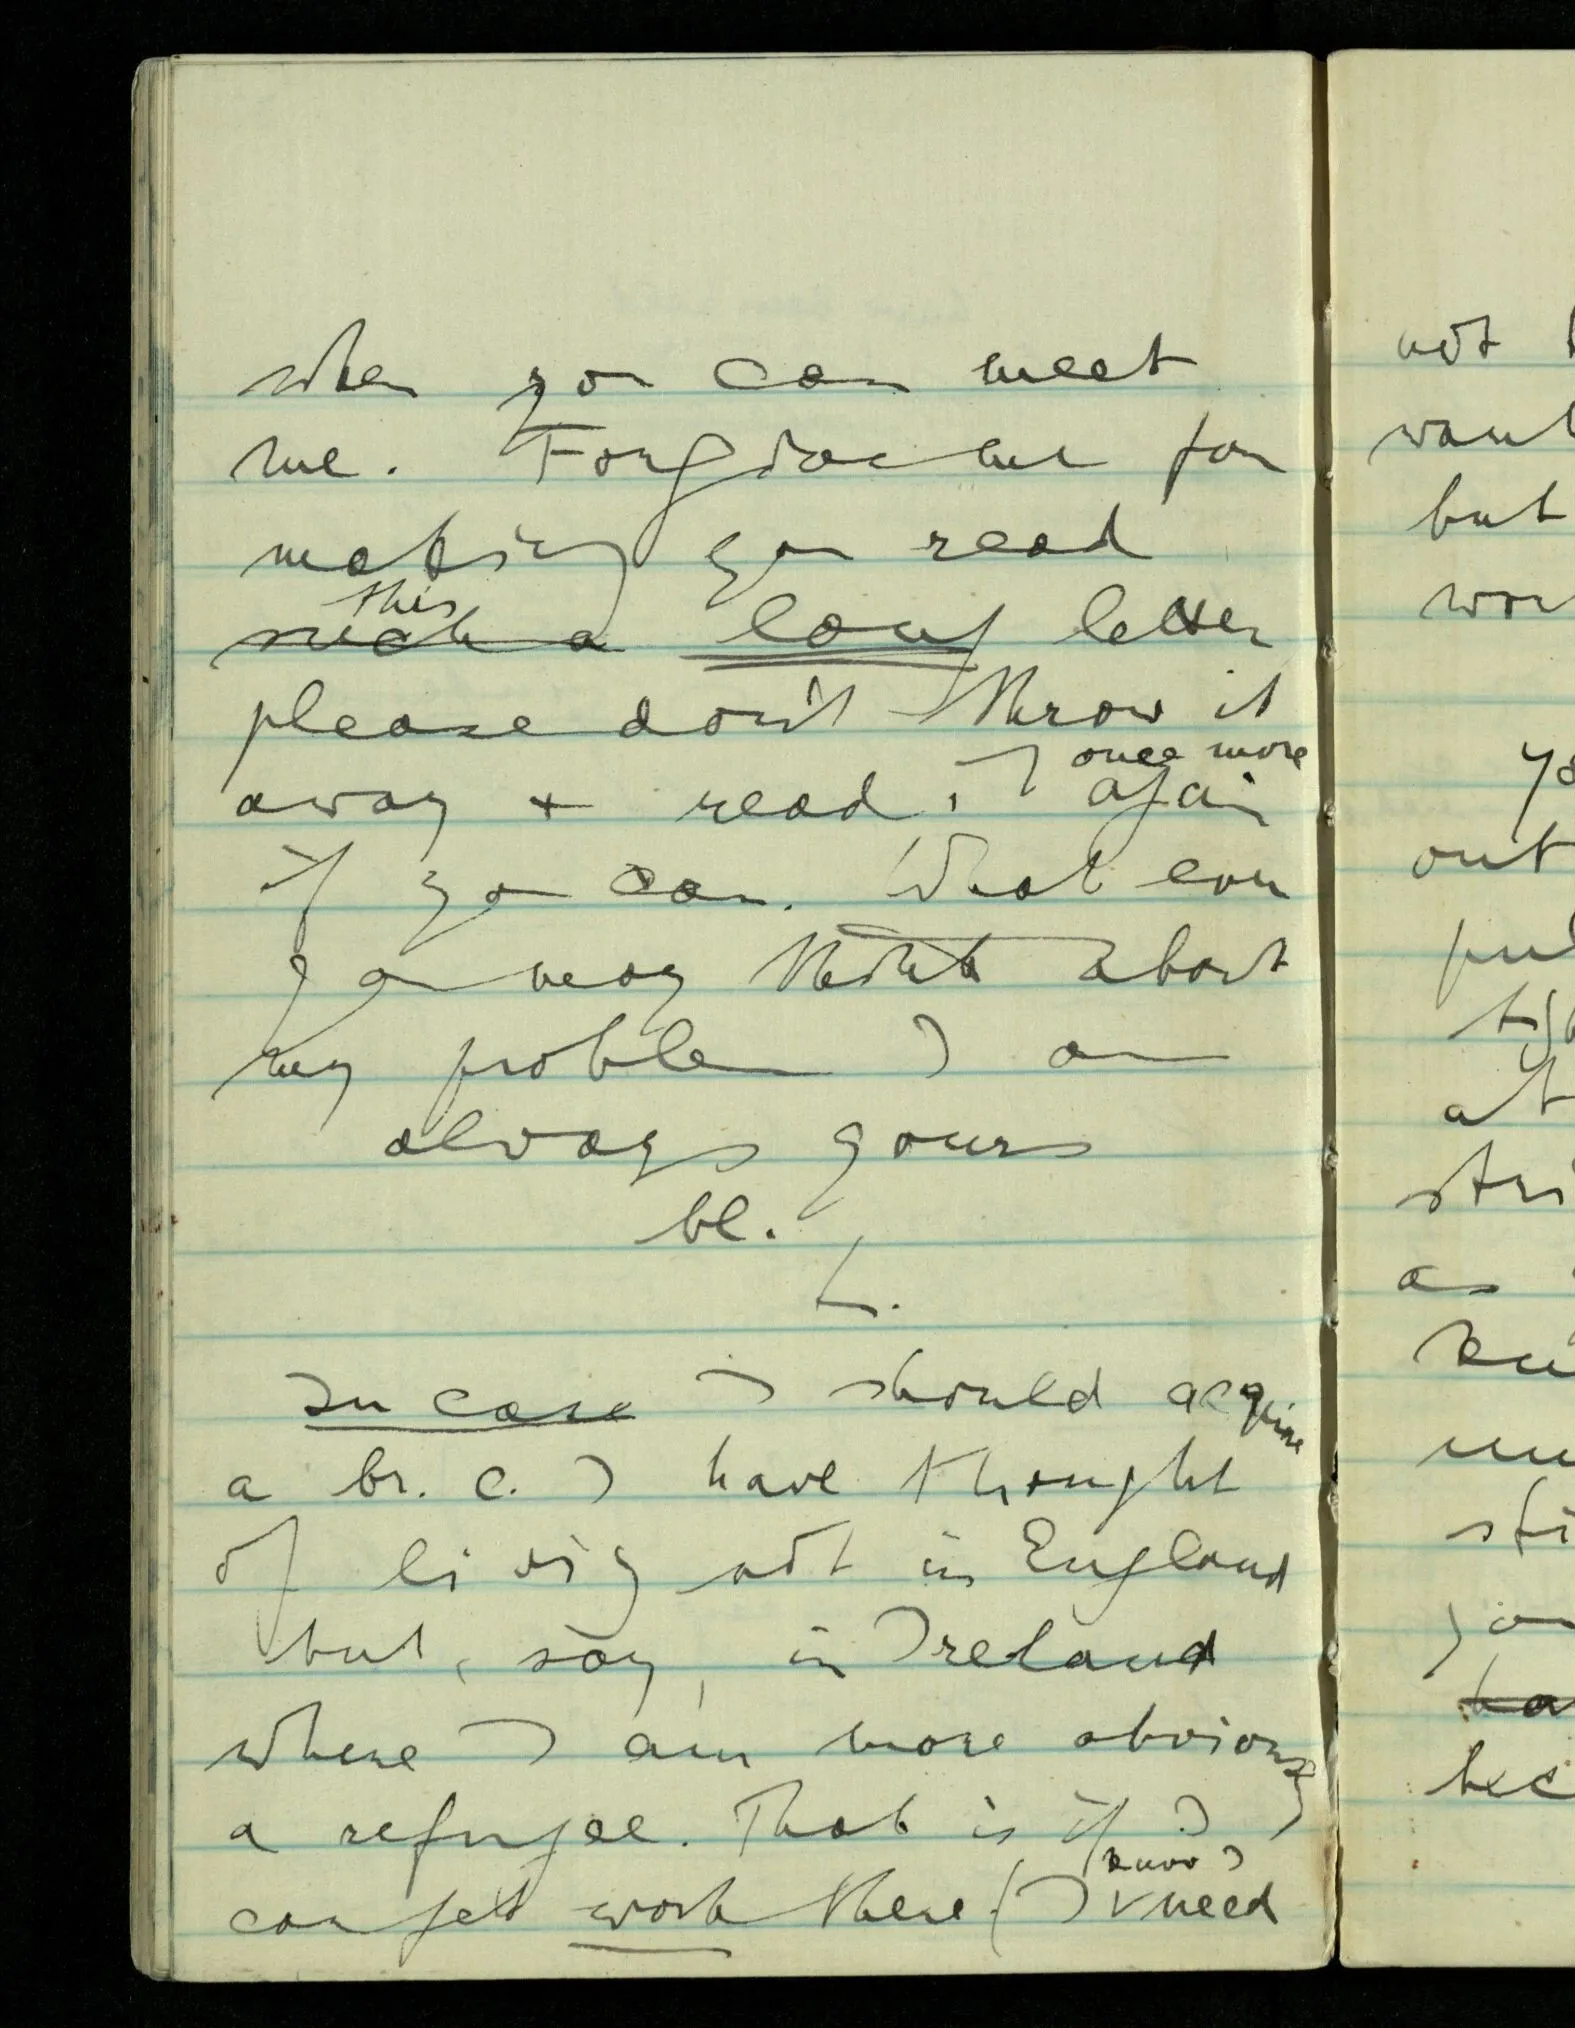 when you can meet
me. Forgive me for
making you read
this
such a long letter
please don't throw it
away & read it again
once more
if you can. What ever
you may think about
my problem I am
always yours
bl.
L.
In case I should acquire
a br. c. I have thought
of living not in England
but, say, in Ireland
where I am more obviously
a refugee. That is if I
can get work there (I need
know I
not
want
but
wor
yo
out
pul
at
stri
as
un
sti
ha
bec